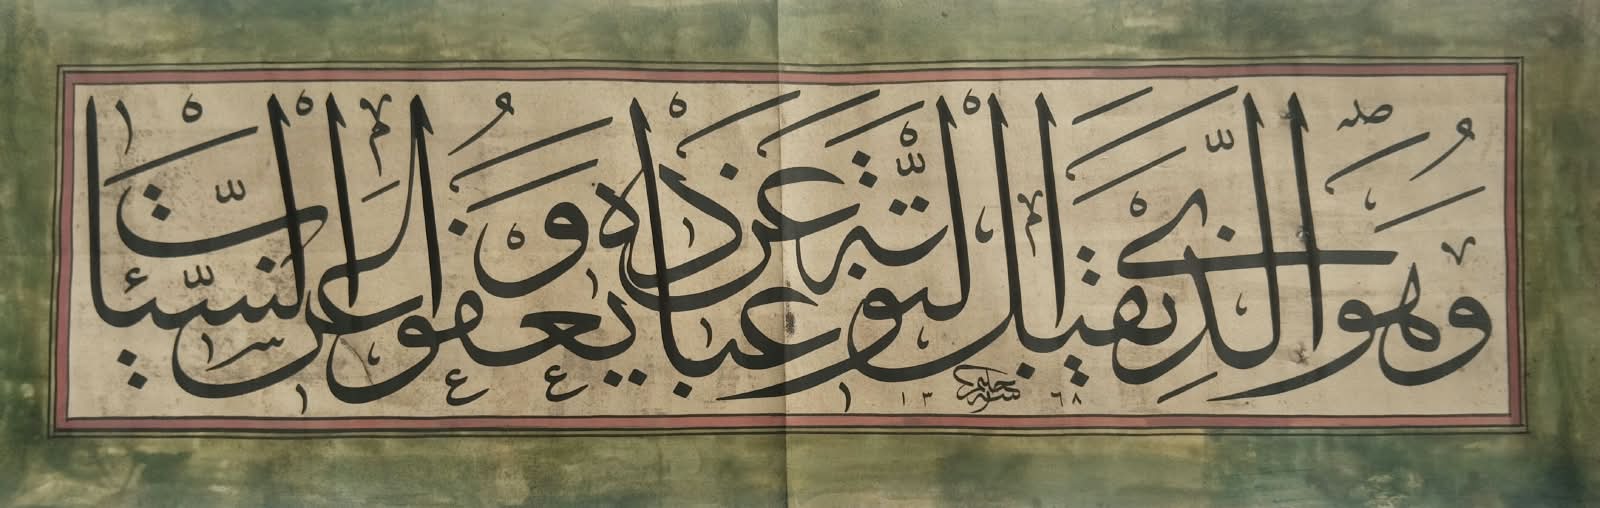 وَهُوَ الَّذِي يَقْبَلُ التَّوْبَةَ عَنْ عِبَادِهِ وَيَعْفُو عَنِ السَّيِّئَاتِ
حليم سنه ١٣٦٨